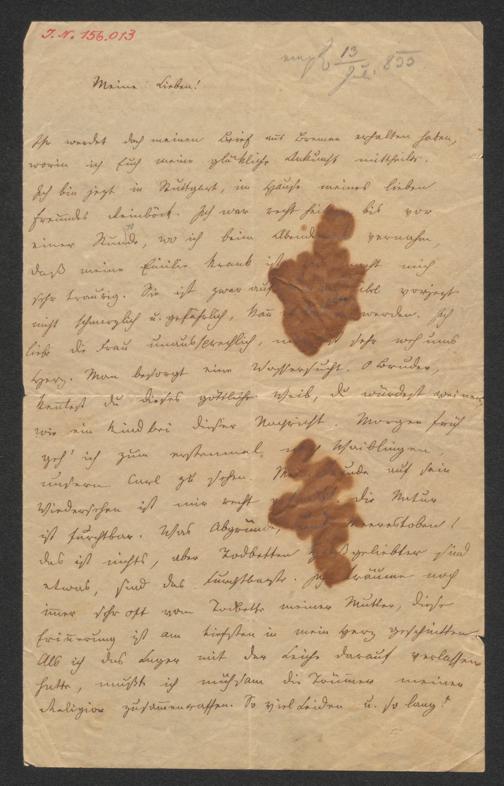 J. N. 156.013
13
Meine Lieben!
Ihr werdet doch meinen Brief aus Bremen erhalten haben,
worin ich Euch meine glückliche Ankunft mittheilte.
Ich bin jezt in Stuttgart, im Hause meines lieben
Freundes Reinbeck. Ich war recht bis vor
einer Stunde, wo ich beim vernahm,
daß meine Emilie krank ist mich
sehr traurig. Sie ist zwar auf vorjezt
nicht schmerzlich u. gefährlich, kann werden. Ich
liebe die Frau unaussprechlich, sehr weh ums
Herz. Man besorgt eine Wassersucht. O Bruder,
kentest du dieses göttliche Weib, du würdest weinen
wie ein Kind bei dieser Nachricht. Morgen früh
geh' ich zum erstenmal, nach Waiblingen,
unsern Carl zu sehen. auf sein
Wiedersehen ist mir recht die Natur
ist furchtbar. Was Abgründe, Meerestoben!
das ist nichts, aber Todbetten geliebter sind
etwas, sind das Furchtbarste. Ich träume noch
imer sehr oft vom Todbette meiner Mutter, diese
Erinerung ist am tiefsten in mein Herz geschnitten.
Als ich das Lager mit der Leiche darauf verlassen
hatte, mußte ich mühsam die Trümmer meiner
Religion zusammenraffen. So viel Leiden u. so lang!